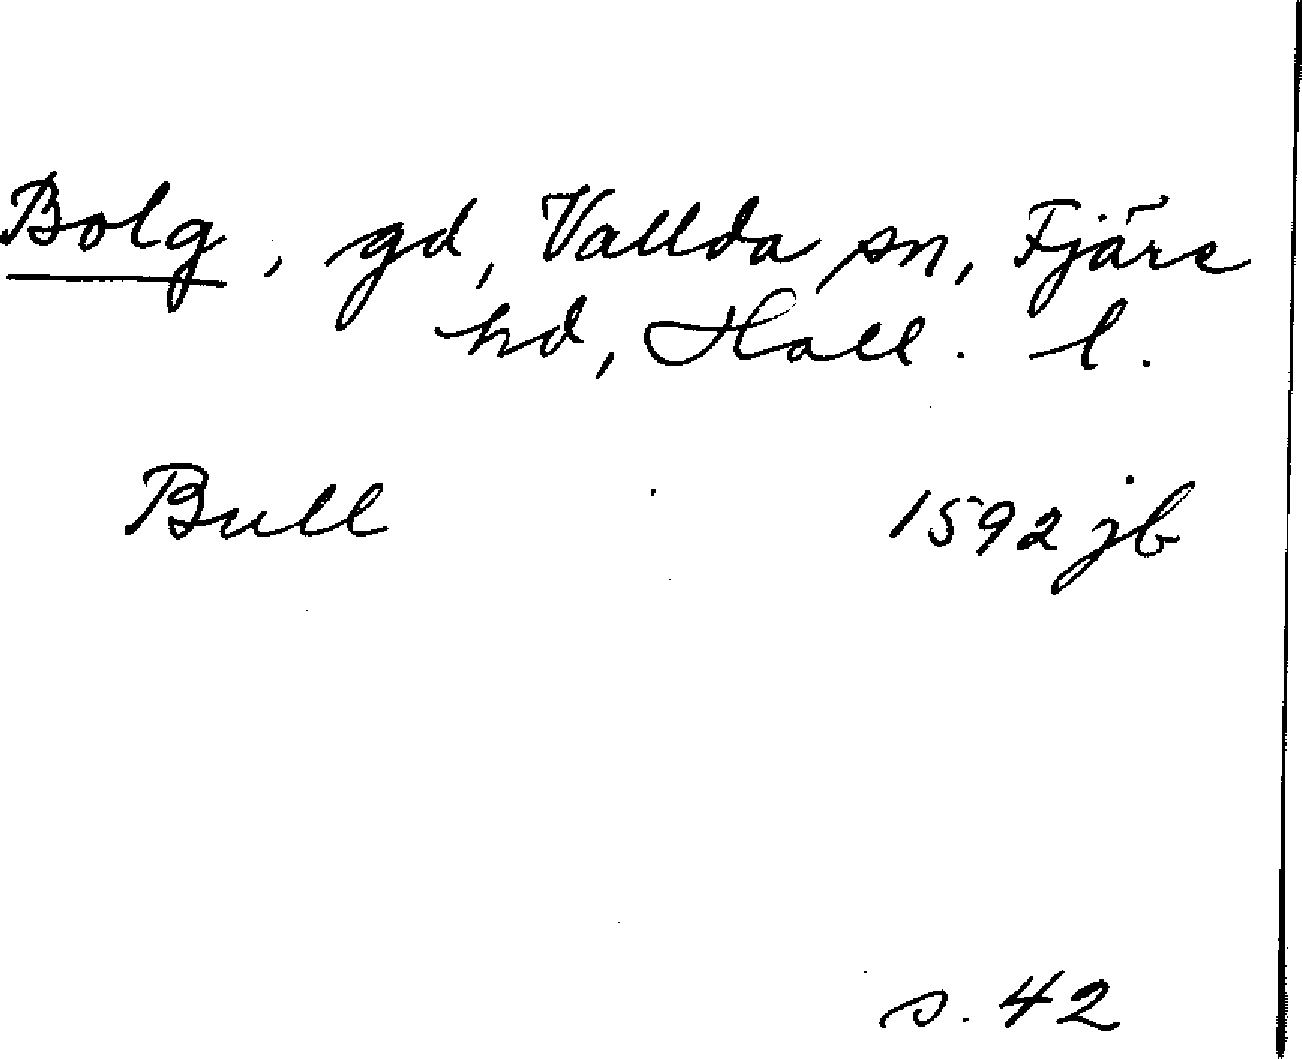 Bolg, gd, Vallda sn, Fjäre
hd, Hall. l.
Bull 1592 jb
s. 42